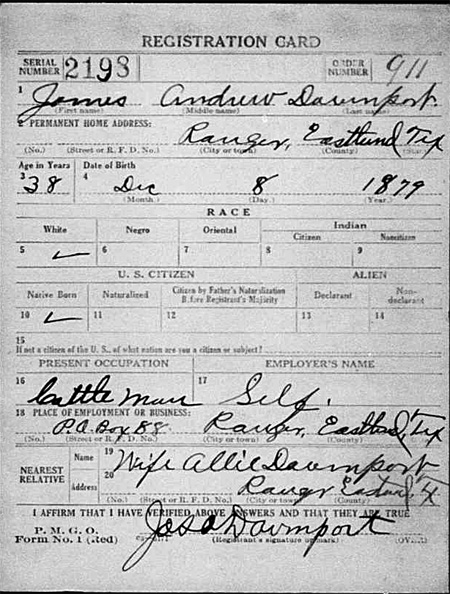 REGISTRATION CARD
SERIAL NUMBER 2198 ORDER NUMBER 911
1 James Andrew Davenport
(First name) (Middle name) (Last name)
2 PERMANENT HOME ADDRESS:
Ranger, Eastland, Tex
(No.) (Street or R. F. D. No.) (City or town) (County)
Age in Years Date of Birth
3 38 4 Dec 8 1879
(Month.) (Day.) (Year.)
RACE
White Negro Oriental Indian
Citizen Noncitizen
5 ✓ 6 7 8 9
U. S. CITIZEN ALIEN
Native Born Naturalized Citizen by Father's Naturalization Before Registrant's Majority Declarant Non-declarant
10 ✓ 11 12 13 14
15
If not a citizen of the U. S., of what nation are you a citizen or subject?
PRESENT OCCUPATION EMPLOYER'S NAME
16 Cattle Man 17 Self.
18 PLACE OF EMPLOYMENT OR BUSINESS:
P.O. Box 88 Ranger, Eastland, Tex
(No.) (Street or R. F. D. No.) (City or town) (County)
NEAREST RELATIVE Name 19 Wife Allie Davenport
Address 20 Ranger Eastland, Tx
(No.) (Street or R. F. D. No.) (City or town) (County)
I AFFIRM THAT I HAVE VERIFIED ABOVE ANSWERS AND THAT THEY ARE TRUE
P. M. G. O.
Form No. 1 (Red) Davenport
(Registrant's signature or mark) (OVER)